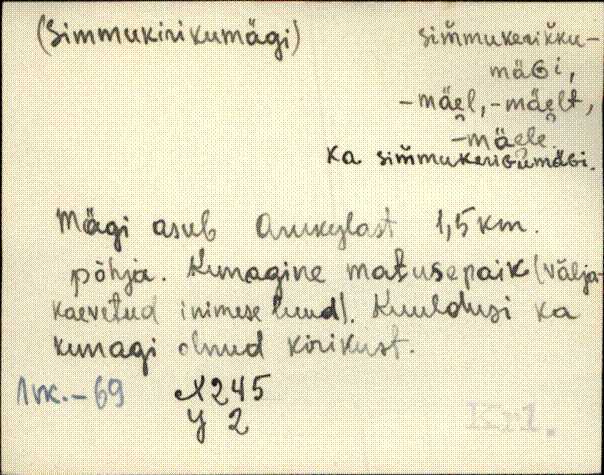 (Simmukirikumägi)
sim̆mukeriǩku-
mäGi,
-mäel, -mäelt,
-mäele.
Ka sim̆mukeriGumäGi.
Mägi asub Arukylast 1,5 km.
põhja. Kunagine matusepaik (välja-
kaevetud inimese luud). Kuuldusi ka
kunagi olnud kirikust.
X245
Y 2
Kr1.